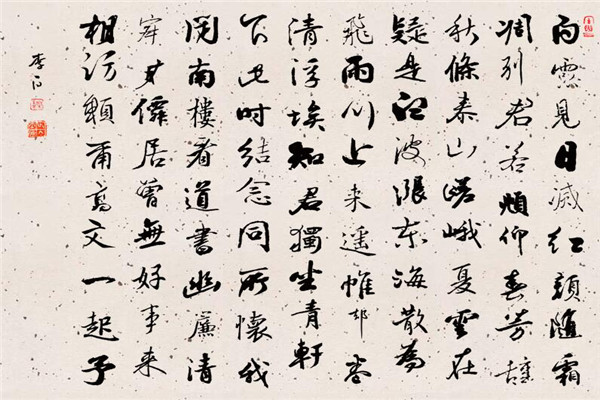 白露見日滅紅顏隨霜
凋別君若俯仰春芳辭
秋條泰山嵯峨夏雲在
疑是白波漲東海散為
飛雨川上來遙帷却卷
清浮埃知君獨坐青軒
下此時結念同所懷我
閉南樓看道書幽簾清
寂若僊居曾無好事來
相訪賴爾高文一起予
李白